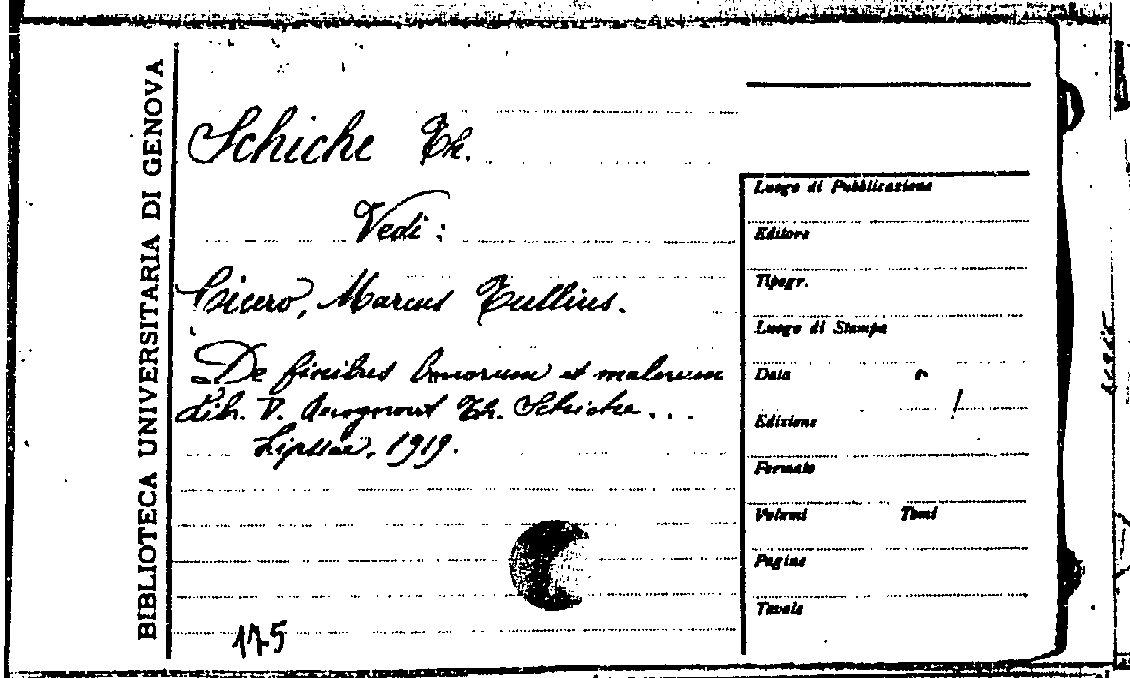 BIBLIOTECA UNIVERSITARIA DI GENOVA
Schiche Th.
Vedi:
Cicero, Marcus Tullius.
De finibus bonorum et malorum
Lib. V. Th. Schiche...
Lipsiae, 1919.
175
Luogo di Pubblicazione
Editore
Tipogr.
Luogo di Stampa
Data
Edizione
Formato
Volumi Tomi
Pagine
Tavole